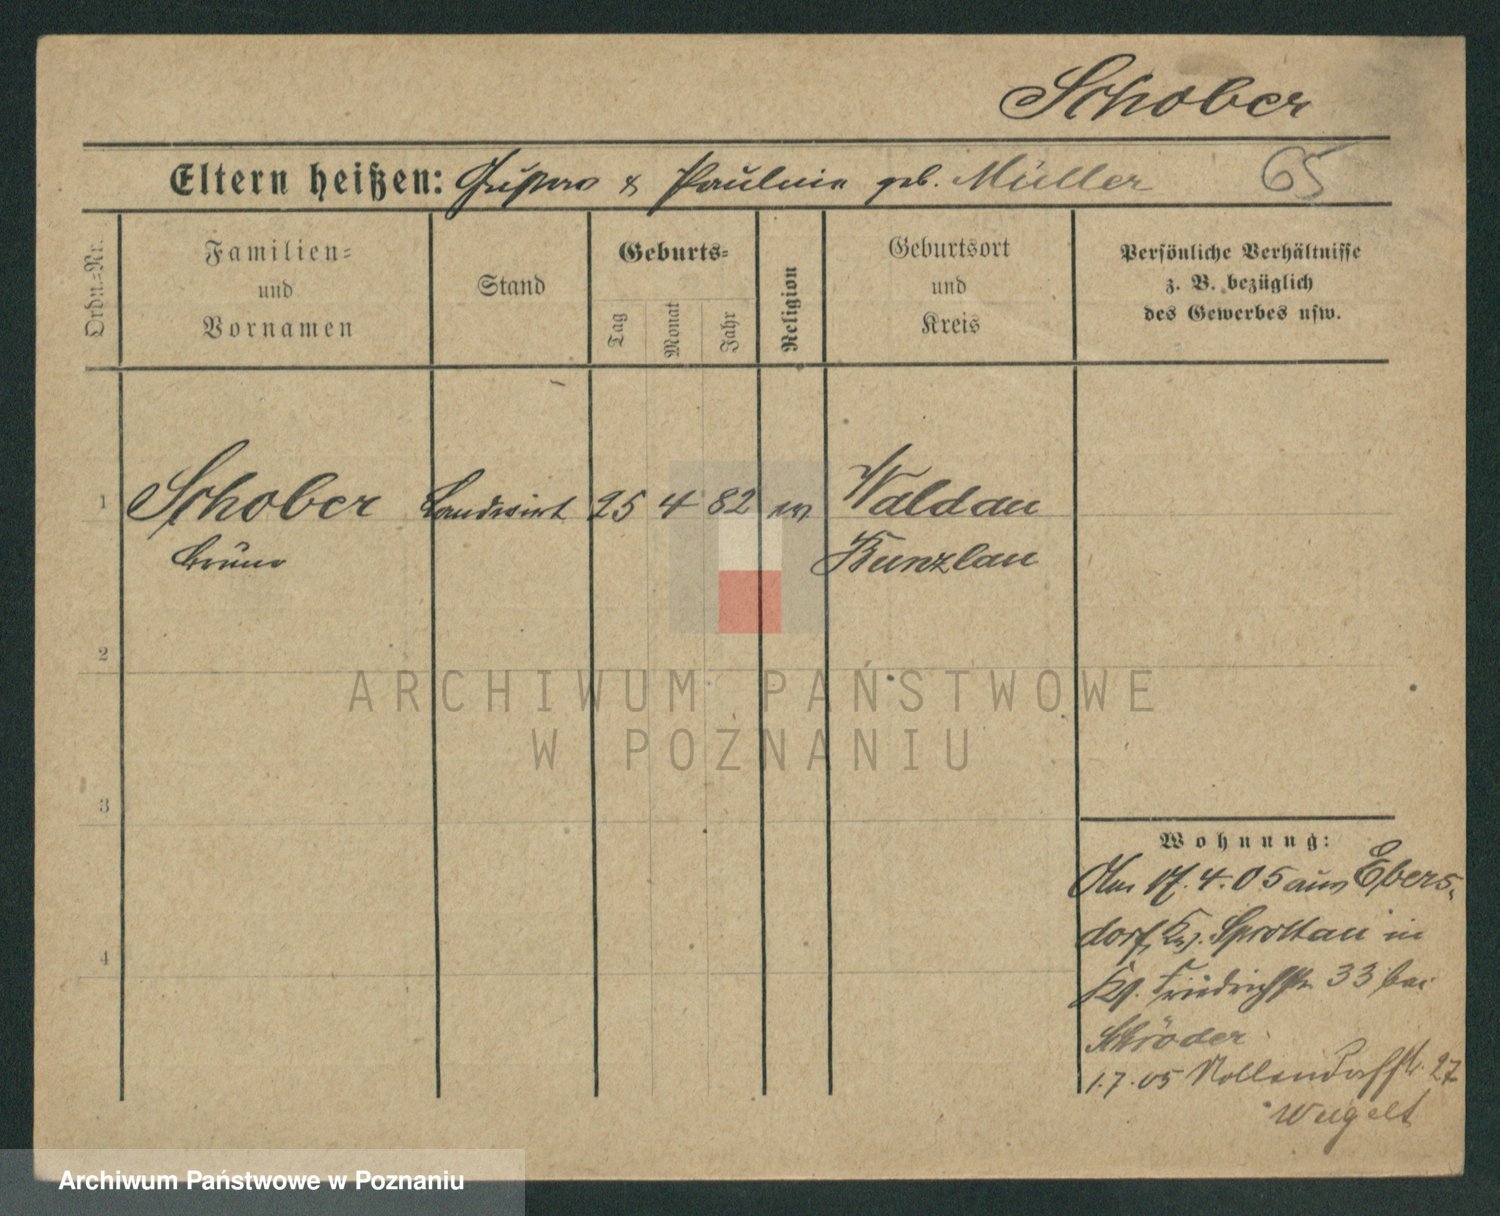 Schober
Eltern heißen: Gustav & Pauline geb. Müller 65
Ordn.-Nr.
Familien-
und
Vornamen
Stand
Geburts-
Tag
Monat
Jahr
Religion
Geburtsort
und
Kreis
Persönliche Verhältnisse
z. B. bezüglich
des Gewerbes usw.
1 Schober Landwirt 25 4 82 ev Waldau
Bruno Bunzlau
2
3
4
Wohnung:
Am 17.4.05 aus Ebers-
dorf, Krs. Sprottau in
Friedrichstr 33 bei
Schröder
1.7.05 Nollendorfstr. 27
Weigelt
ARCHIWUM PAŃSTWOWE
W POZNANIU
Archiwum Państwowe w Poznaniu